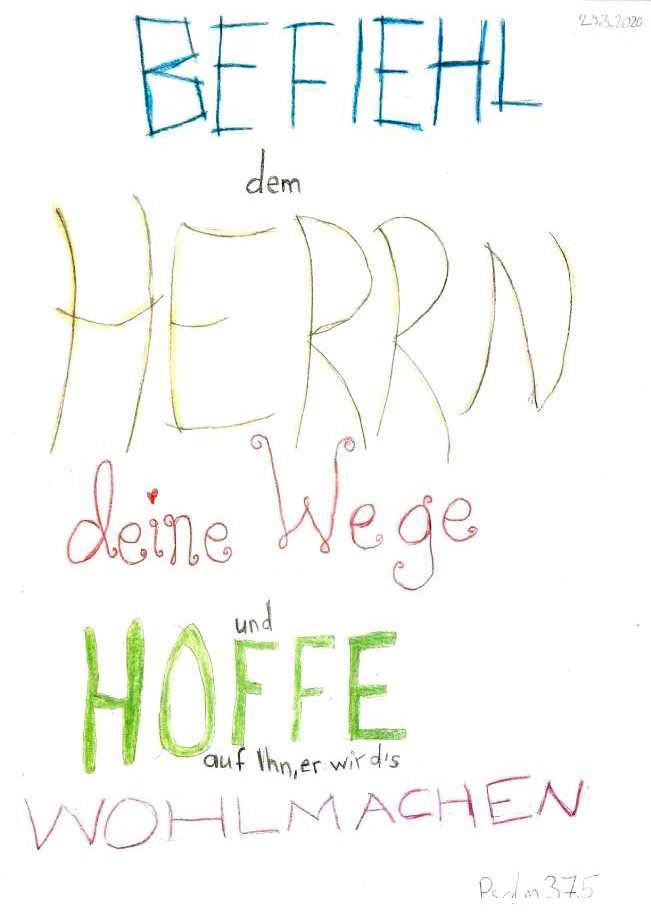 BEFIEHL
dem
HERRN
deine Wege
und
HOFFE
auf Ihn, er wird's
WOHLMACHEN
Psalm 37.5